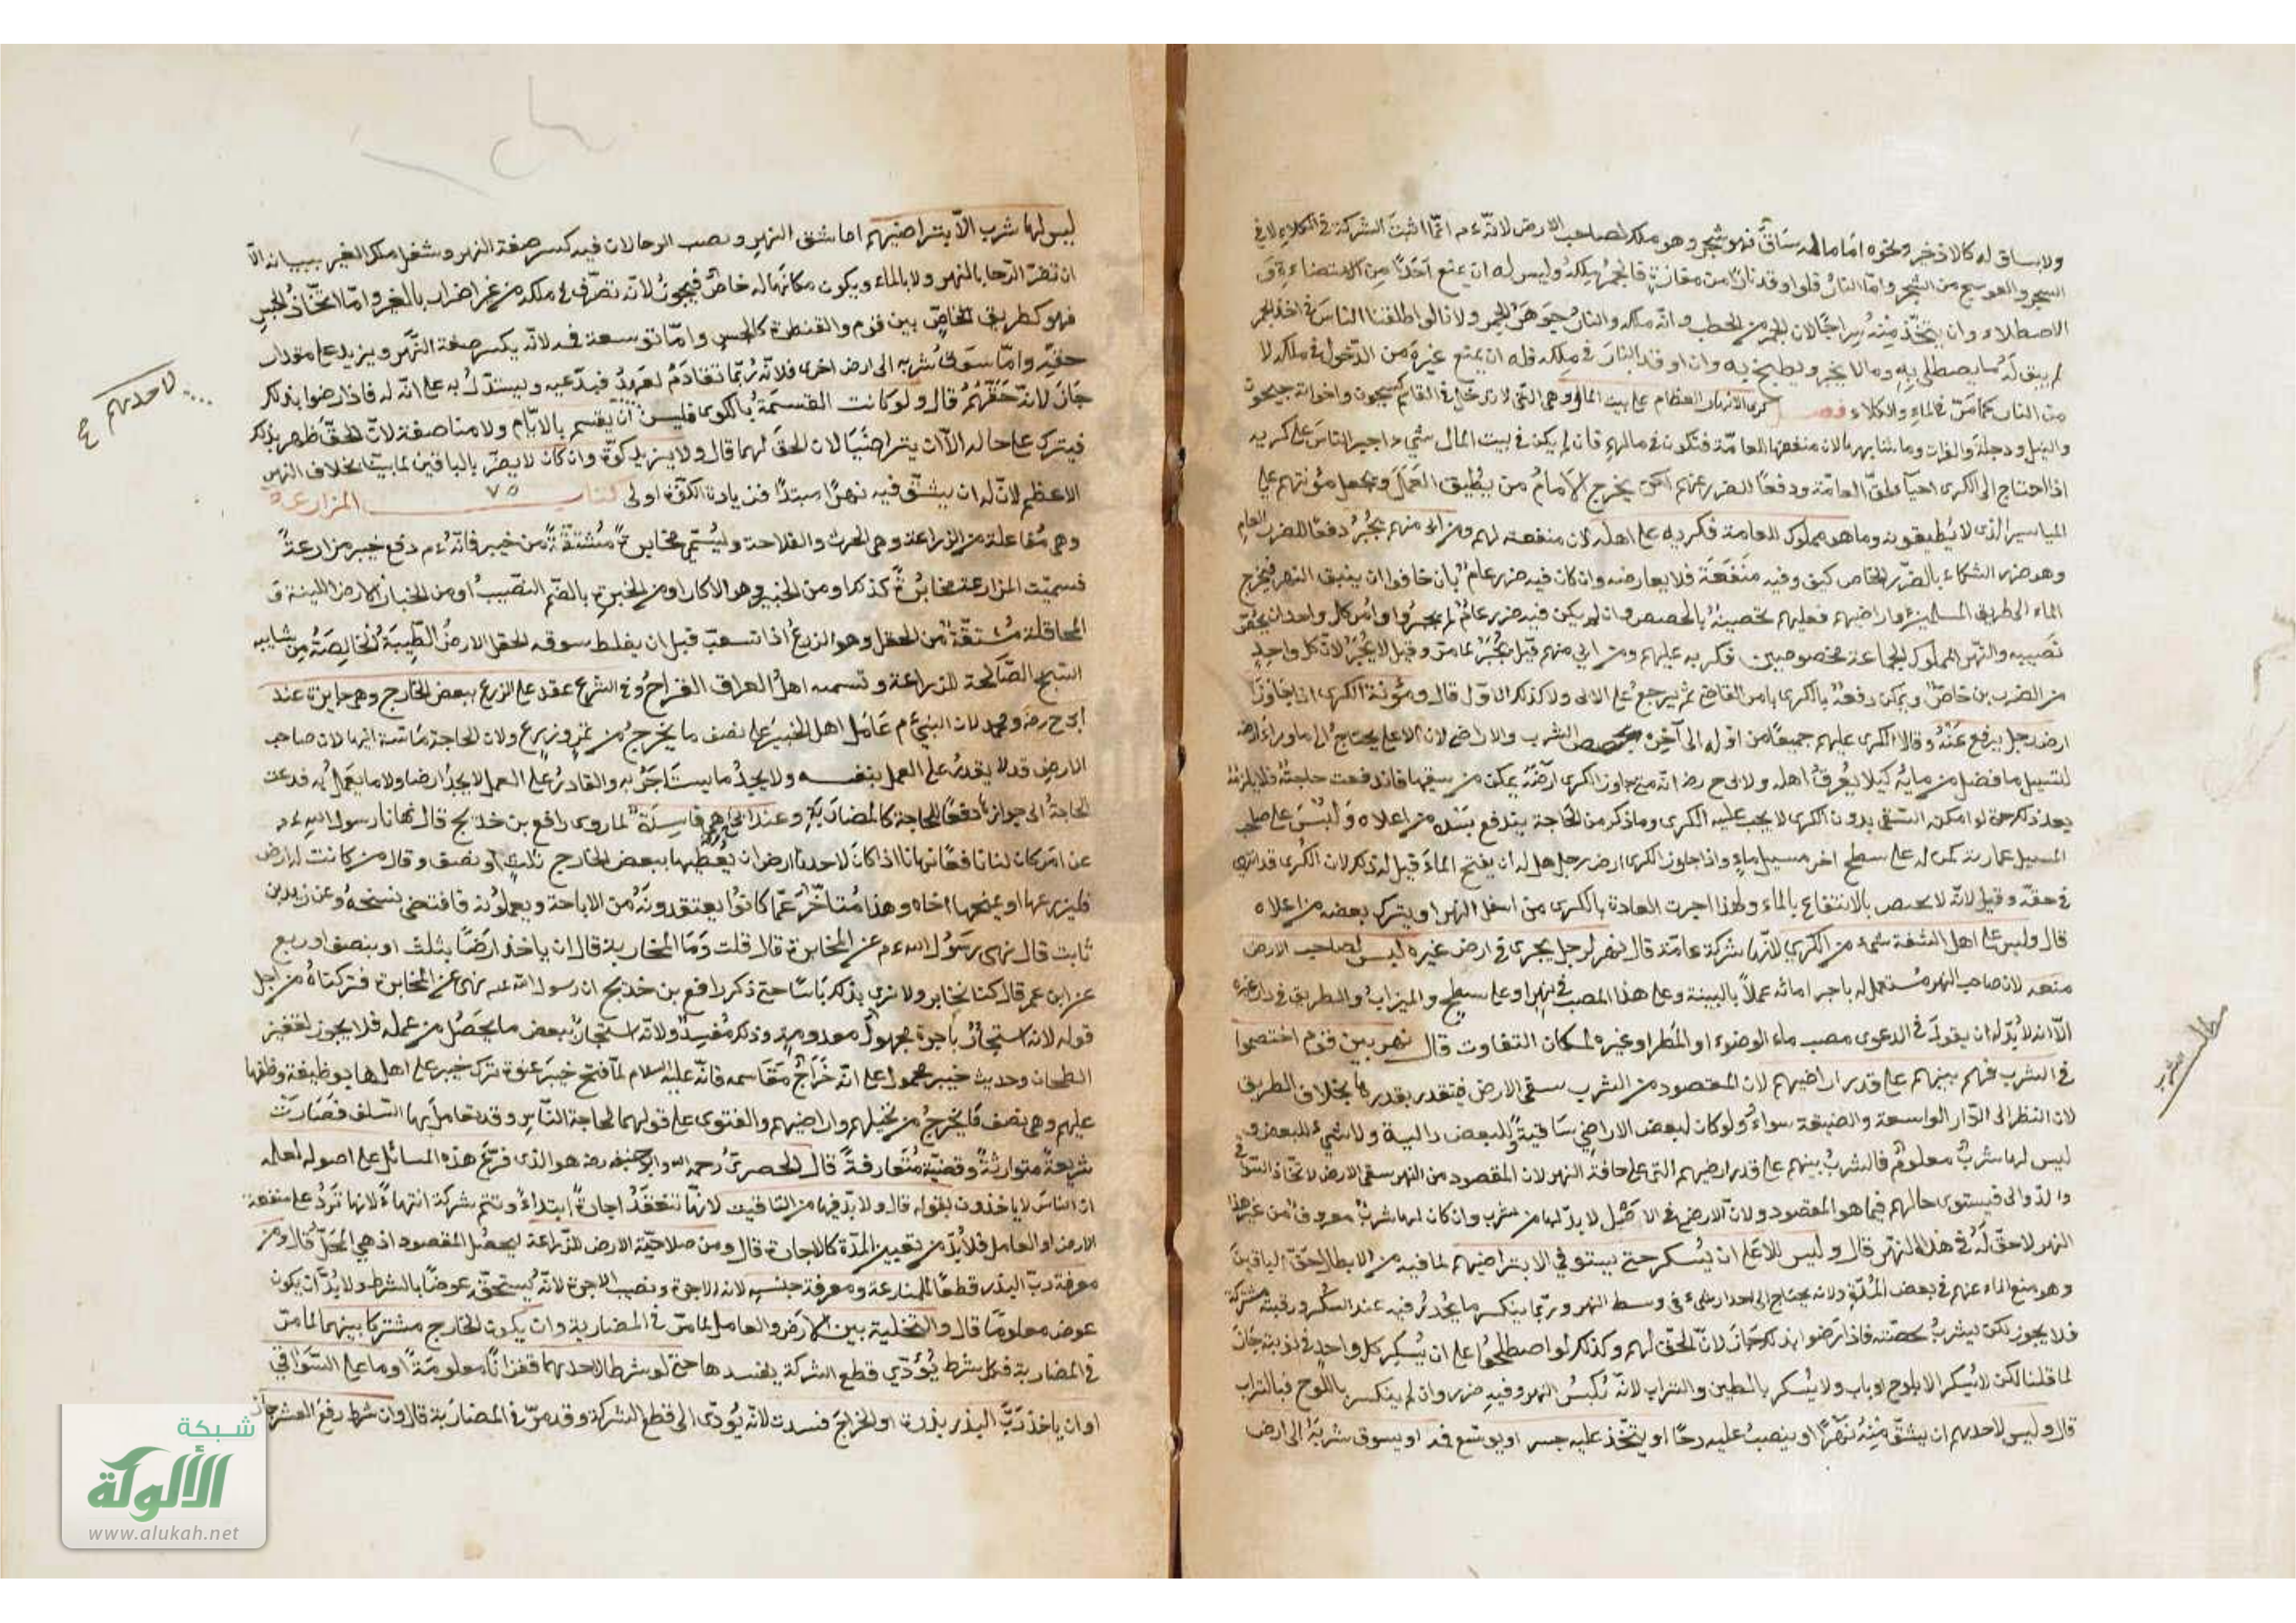 ولا ساق له كالاذخر ونحوه اما ما له ساق فهو شجر وهو ملك لصاحب الارض لانه ءم انما اثبت الشركة في الكلاء لا في
الشجر والعوسج من الشجر واما النار فلو اوقد نارا من مفازة فالجمر ملكه وليس له ان يمنع احدا من الاستضاءة و
الاصطلاء وان يتخذ منه سراجا لان الجمر من الحطب وانه ملكه والنار جوهر الجمر ولانا لو اطلقنا الناس في اخذ الجمر
لم يبق له ما يصطلي به وما لا يخبز ويطبخ به وان اوقد النار في ملكه فله ان يمنع غيره من الدخول في ملكه لا
من النار كما مر في الماء والكلاء فصل كرى الانهار العظام على بيت المال وهي التي لا تدخل في المقاسم كسيحون واخواته جيحون
والنيل ودجلة والفرات وما شابهها لان منفعتها للعامة فتكون في مالهم فان لم يكن في بيت المال شيء اجبر الناس على كريه
اذا احتاج الى الكرى احياء لحق العامة ودفعا للضرر عنهم لكن يخرج الامام من يطيق العمل ويجعل مؤنتهم على
المياسير الذي لا يطيقونه وما هو مملوك للعامة فكريه على اهله لان منفعته لهم ومن ابى منهم يجبر دفعا للضرر العام
وهو ضرر الشركاء بالضرر الخاص كيف وفيه منفعة فلا يعارضه وان كان فيه ضرر عام بان خافوا ان ينبثق النهر فيخرج
الماء الى طريق المسلمين واراضيهم فعليهم تحصينه بالحصص وان لم يكن فيه ضرر عام لم يجبروا وامر كل واحد ان يحفر
نصيبه والنهر المملوك لجماعة مخصوصين فكريه عليهم ومن ابى منهم قيل يجبر لما مر وقيل لا يجبر لان كل واحد
من الضررين خاص ويمكن دفعه بالكرى بامر القاضي ثم يرجع على الابى ولا كذلك الاول قال ومؤنة الكرى اذا جاوز
ارض رجل يرفع عنه وقالا الكرى عليهم جميعا من اوله الى آخره بحصص الشرب والاراضي لان الاعلى يحتاج الى ما وراء ارضه
لتسييل ما فضل من مائه كيلا يغرق اهله ولابى ح رض انه متى جاوز الكرى ارضه يمكن من سقيها فاندفعت حاجته فلا يلزمه
بعد ذلك حتى لو امكنه السقي بدون الكرى لا يجب عليه الكرى وما ذكر من الحاجة يندفع بسده من اعلاه وليس على صاحب
المسيل عمارته كمن له على سطح اخر مسيل ماء واذا جاوز الكرى ارض رجل هل له ان يفتح الماء قيل له ذلك لان الكرى قد انتهى
في حقه وقيل لا لانه لا يختص بالانتفاع بالماء ولهذا جرت العادة بالكرى من اسفل النهر او يترك بعضه من اعلاه
قال وليس على اهل الشفة شيء من الكرى لانها شركة عامة قال نهر لرجل يجرى في ارض غيره ليس لصاحب الارض
منعه لان صاحب النهر مستعمل له باجراء مائه عملا بالبينة وعلى هذا المصب في نهر او على سطح والميزاب والطريق في دار غيره
الا انه لا بد له ان يقول في الدعوى مصب ماء الوضوء او المطر او غيره لمكان التفاوت قال نهر بين قوم اختصموا
في الشرب فهو بينهم على قدر اراضيهم لان المقصود من الشرب سقي الارض فيتقدر بقدرها بخلاف الطريق
لان النظر الى الدار الواسعة والضيقة سواء ولو كان لبعض الاراضي ساقية وللبعض دالية ولا شيء للبعض و
ليس لها شرب معلوم فالشرب بينهم على قدر اراضيهم التي على حافة النهر لان المقصود من النهر سقي الارض لا اتخاذ السواقي
والدوالي فيستوى حالهم فيما هو المقصود ولان الارض في الاصل لا بد لها من شرب وان كان لها شرب معروف من غير هذا
النهر لا حق له في هذا النهر قال وليس للاعلى ان يسكر حتى يستوفي الا بتراضيهم لما فيه من الابطال لحق الباقين
وهو منع الماء عنهم في بعض المدة ولانه يحتاج الى احداث شيء في وسط النهر وربما ينكسر ما يحدث فيه عند السكر ورقبته مشتركة
فلا يجوز لكن يشرب بحصته فاذا رضوا بذلك جاز لان الحق لهم وكذلك لو اصطلحوا على ان يسكر كل واحد في نوبته جاز
لما قلنا لكن لا يسكر الا بلوح او باب ولا يسكر بالطين والتراب لانه يكبس النهر وفيه ضرر وان لم ينكسر باللوح فبالتراب
قال وليس لاحدهم ان يشق منه نهرا او ينصب عليه رحا او يتخذ عليه جسر او يوسع فمه او يسوق شربه الى ارض
ليس لها شرب الا بتراضيهم اما شق النهر ونصب الرحا لان فيه كسر ضفة النهر وشغل ملك الغير ببنيانه الا
ان تضر الرحا بالنهر ولا بالماء ويكون مكانها له خاص فيجوز لانه تصرف في ملكه من غير اضرار بالغير واما اتخاذ الجسر
فهو كطريق الخاص بين قوم والقنطرة كالجسر واما توسعة فمه لانه يكسر ضفة النهر ويزيد على مقدار
حقه واما سوق شربه الى ارض اخرى فلانه ربما تقادم العهد فيدعيه ويستدل به على انه له فاذا رضوا بذلك
جاز لانه حقهم قال ولو كانت القسمة بالكوى فليس ان يقسم بالايام ولا مناصفة لان الحق ظهر بذلك
فيترك على حاله الا ان يتراضيا لان الحق لهما قال ولا يزيد كوة وان كان لا يضر بالباقين لما بينا بخلاف النهر
الاعظم لان له ان يشق فيه نهرا مبتدا فزيادة الكوة اولى كتاب ٧٥ المزارعة
وهي مفاعلة من الزراعة وهي الحرث والفلاحة وتسمى مخابرة مشتقة من خيبر فانه ءم دفع خيبر مزارعة
فسميت المزارعة مخابرة كذلك او من الخبير وهو الاكار او من الخبرة بالضم النصيب او من الخبار الارض اللينة و
المحاقلة مشتقة من الحقل وهو الزرع اذا تشعب قبل ان يغلظ سوقه الحقل الارض الطيبة الخالصة من شايبه
السبخ الصالحة للزراعة وتسميه اهل العراق القراح وفي الشرع عقد على الزرع ببعض الخارج وهي جايزة عند
ابى ح رض ومحمد لان النبي ءم عامل اهل الخيبر على نصف ما يخرج من ثمر وزرع ولان الحاجة ماسة اليها لان صاحب
الارض قد لا يقدر على العمل بنفسه ولا يجد ما يستاجر به والقادر على العمل لا يجد ارضا ولا ما يعمل به فدعت
الحاجة الى جوازها دفعا للحاجة كالمضاربة وعند ابى ح هي فاسدة لما روى رافع بن خديج قال نهانا رسول الله ءم
عن امر كان لنا نافعا نهانا اذا كان لاحدنا ارض ان يعطيها ببعض الخارج ثلث او نصف وقال من كانت له ارض
فليزرعها او يمنحها اخاه وهذا متاخر عما كانوا يعتقدونه من الاباحة ويعملونه فاقتضى نسخه وعن زيد بن
ثابت قال نهى رسول الله ءم عن المخابرة قال قلت وما المخابرة قال ان ياخذ ارضا بثلث او بنصف او ربع
عن ابن عمر قال كنا نخابر ولا نرى بذلك باسا حتى ذكر رافع بن خديج ان رسول الله ءم نهى عن المخابرة فتركناه من اجل
قوله لانه استيجار باجرة مجهولة معدومة وذلك مفسد ولانه استيجار ببعض ما يحصل من عمله فلا يجوز كقفيز
الطحان وحديث خيبر محمول على انه خراج مقاسمه فانه عليه السلام لما فتح خيبر عنوة ترك خيبر على اهلها بوظيفة وظفها
عليهم وهي نصف ما يخرج من نخيلهم واراضيهم والفتوى على قولهما لحاجة الناس وقد تعامل بها السلف فصارت
شريعة متوارثة وقضية متعارفة قال الحصري رحمه الله وابو حنيفة رض هو الذي فرع هذه المسائل على اصوله لعلمه
ان الناس لا ياخذون بقوله قال ولا بد فيها من التاقيت لانها تنعقد اجارة ابتداء وتتم شركة انتهاء لانها ترد على منفعة
الارض او العامل فلا بد من تعيين المدة كالاجارة قال ومن صلاحية الارض للزراعة ليحصل المقصود اذ هي المحل قال ومن
معرفة رب البذر قطعا للمنازعة ومعرفة جنسه لانه الاجرة ونصيب الاجرة لانه يستحق عوضا بالشرط ولا بد ان يكون
عوض معلوما قال والتخلية بين الارض والعامل لما مر في المضاربة وان يكون الخارج مشتركا بينهما لما مر
في المضاربة فكل شرط يؤدي قطع الشركة يفسدها حتى لو شرطا لاحدهما قفزانا معلومة او ما على السواقي
او ان ياخذ رب البذر بذره او الخراج فسدت لانه يؤدي الى قطع الشركة وقد مر في المضاربة قال وان شرط رفع العشر جاز
لاحدهم
مطلب
شبكة
الألوكة
www.alukah.net